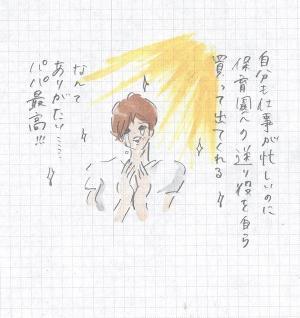 自分も仕事が忙しいのに
保育園への送り役を自ら
買って出てくれる
なんて
ありがたい……
パパ最高!!!